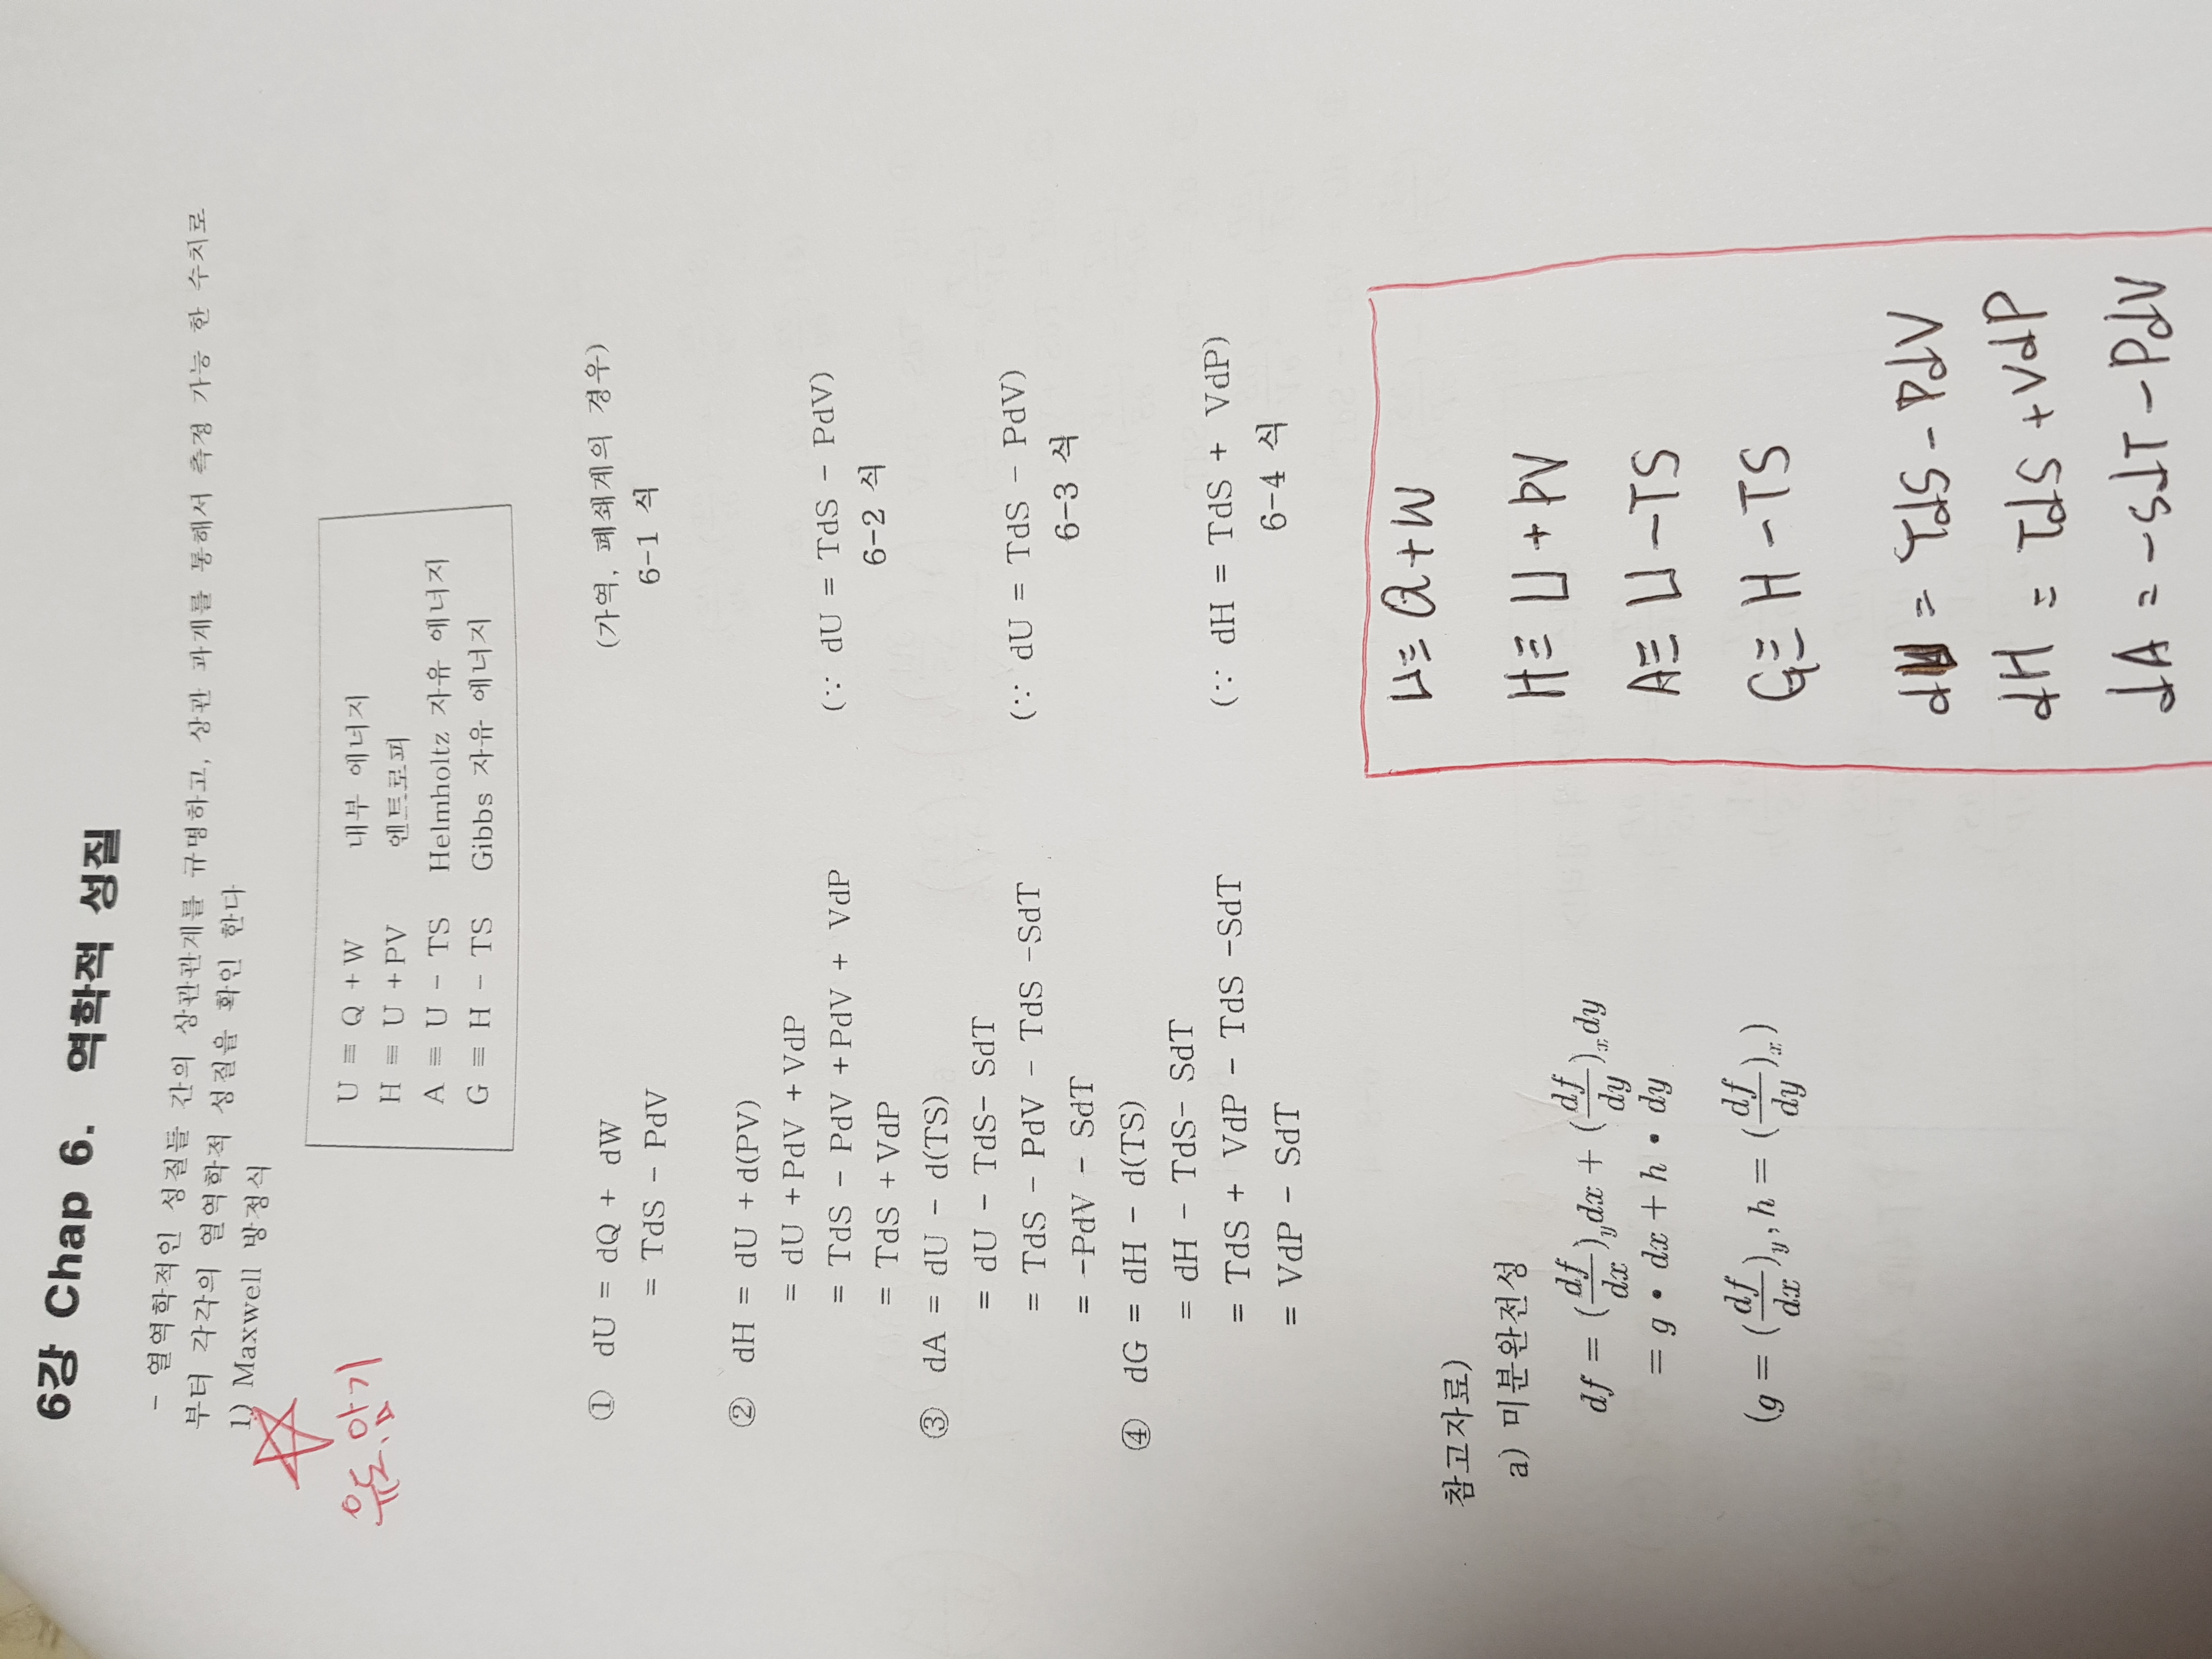 6강 Chap 6. 역학적 성질
- 열역학적인 성질들 간의 상관관계를 규명하고, 상관 과계를 통해서 측정 가능 한 수치로
부터 각각의 열역학적 성질을 확인 한다
1) Maxwell 방정식
유도, 암기
U ≡ Q + W 내부 에너지
H ≡ U + PV 엔트로피
A ≡ U - TS Helmholtz 자유 에너지
G ≡ H - TS Gibbs 자유 에너지
① dU = dQ + dW (가역, 폐쇄계의 경우)
= TdS - PdV 6-1 식
② dH = dU + d(PV)
= dU + PdV + VdP
= TdS - PdV + PdV + VdP (∵ dU = TdS - PdV)
= TdS + VdP 6-2 식
③ dA = dU - d(TS)
= dU - TdS - SdT
= TdS - PdV - TdS - SdT (∵ dU = TdS - PdV)
= -PdV - SdT 6-3 식
④ dG = dH - d(TS)
= dH - TdS - SdT
= TdS + VdP - TdS - SdT (∵ dH = TdS + VdP)
= VdP - SdT 6-4 식
참고자료)
a) 미분완전성
df = (df/dx)_y dx + (df/dy)_x dy
= g • dx + h • dy
(g = (df/dx)_y, h = (df/dy)_x)
U ≡ Q + W
H ≡ U + PV
A ≡ U - TS
G ≡ H - TS
dU = TdS - PdV
dH = TdS + VdP
dA = -SdT - PdV